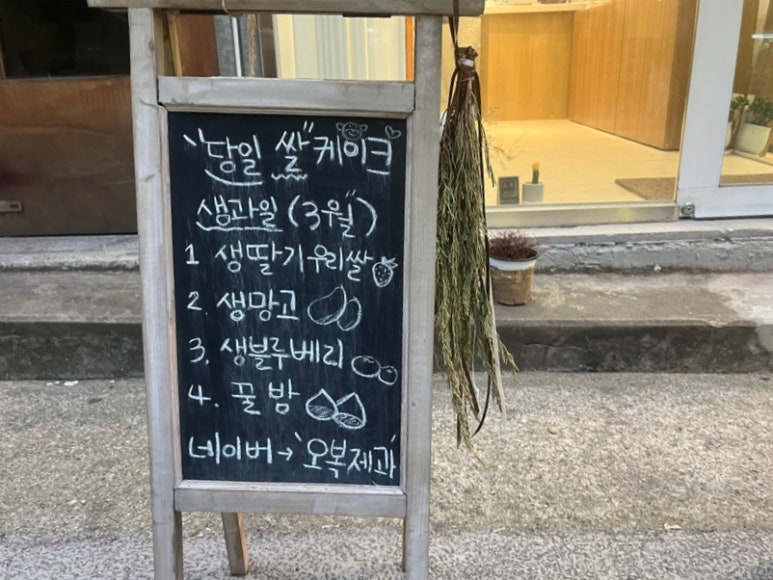 "당일 쌀" 케이크
생과일 (3월")
1 생딸기우리쌀
2. 생망고
3. 생블루베리
4. 꿀밤
네이버→'오복제과'